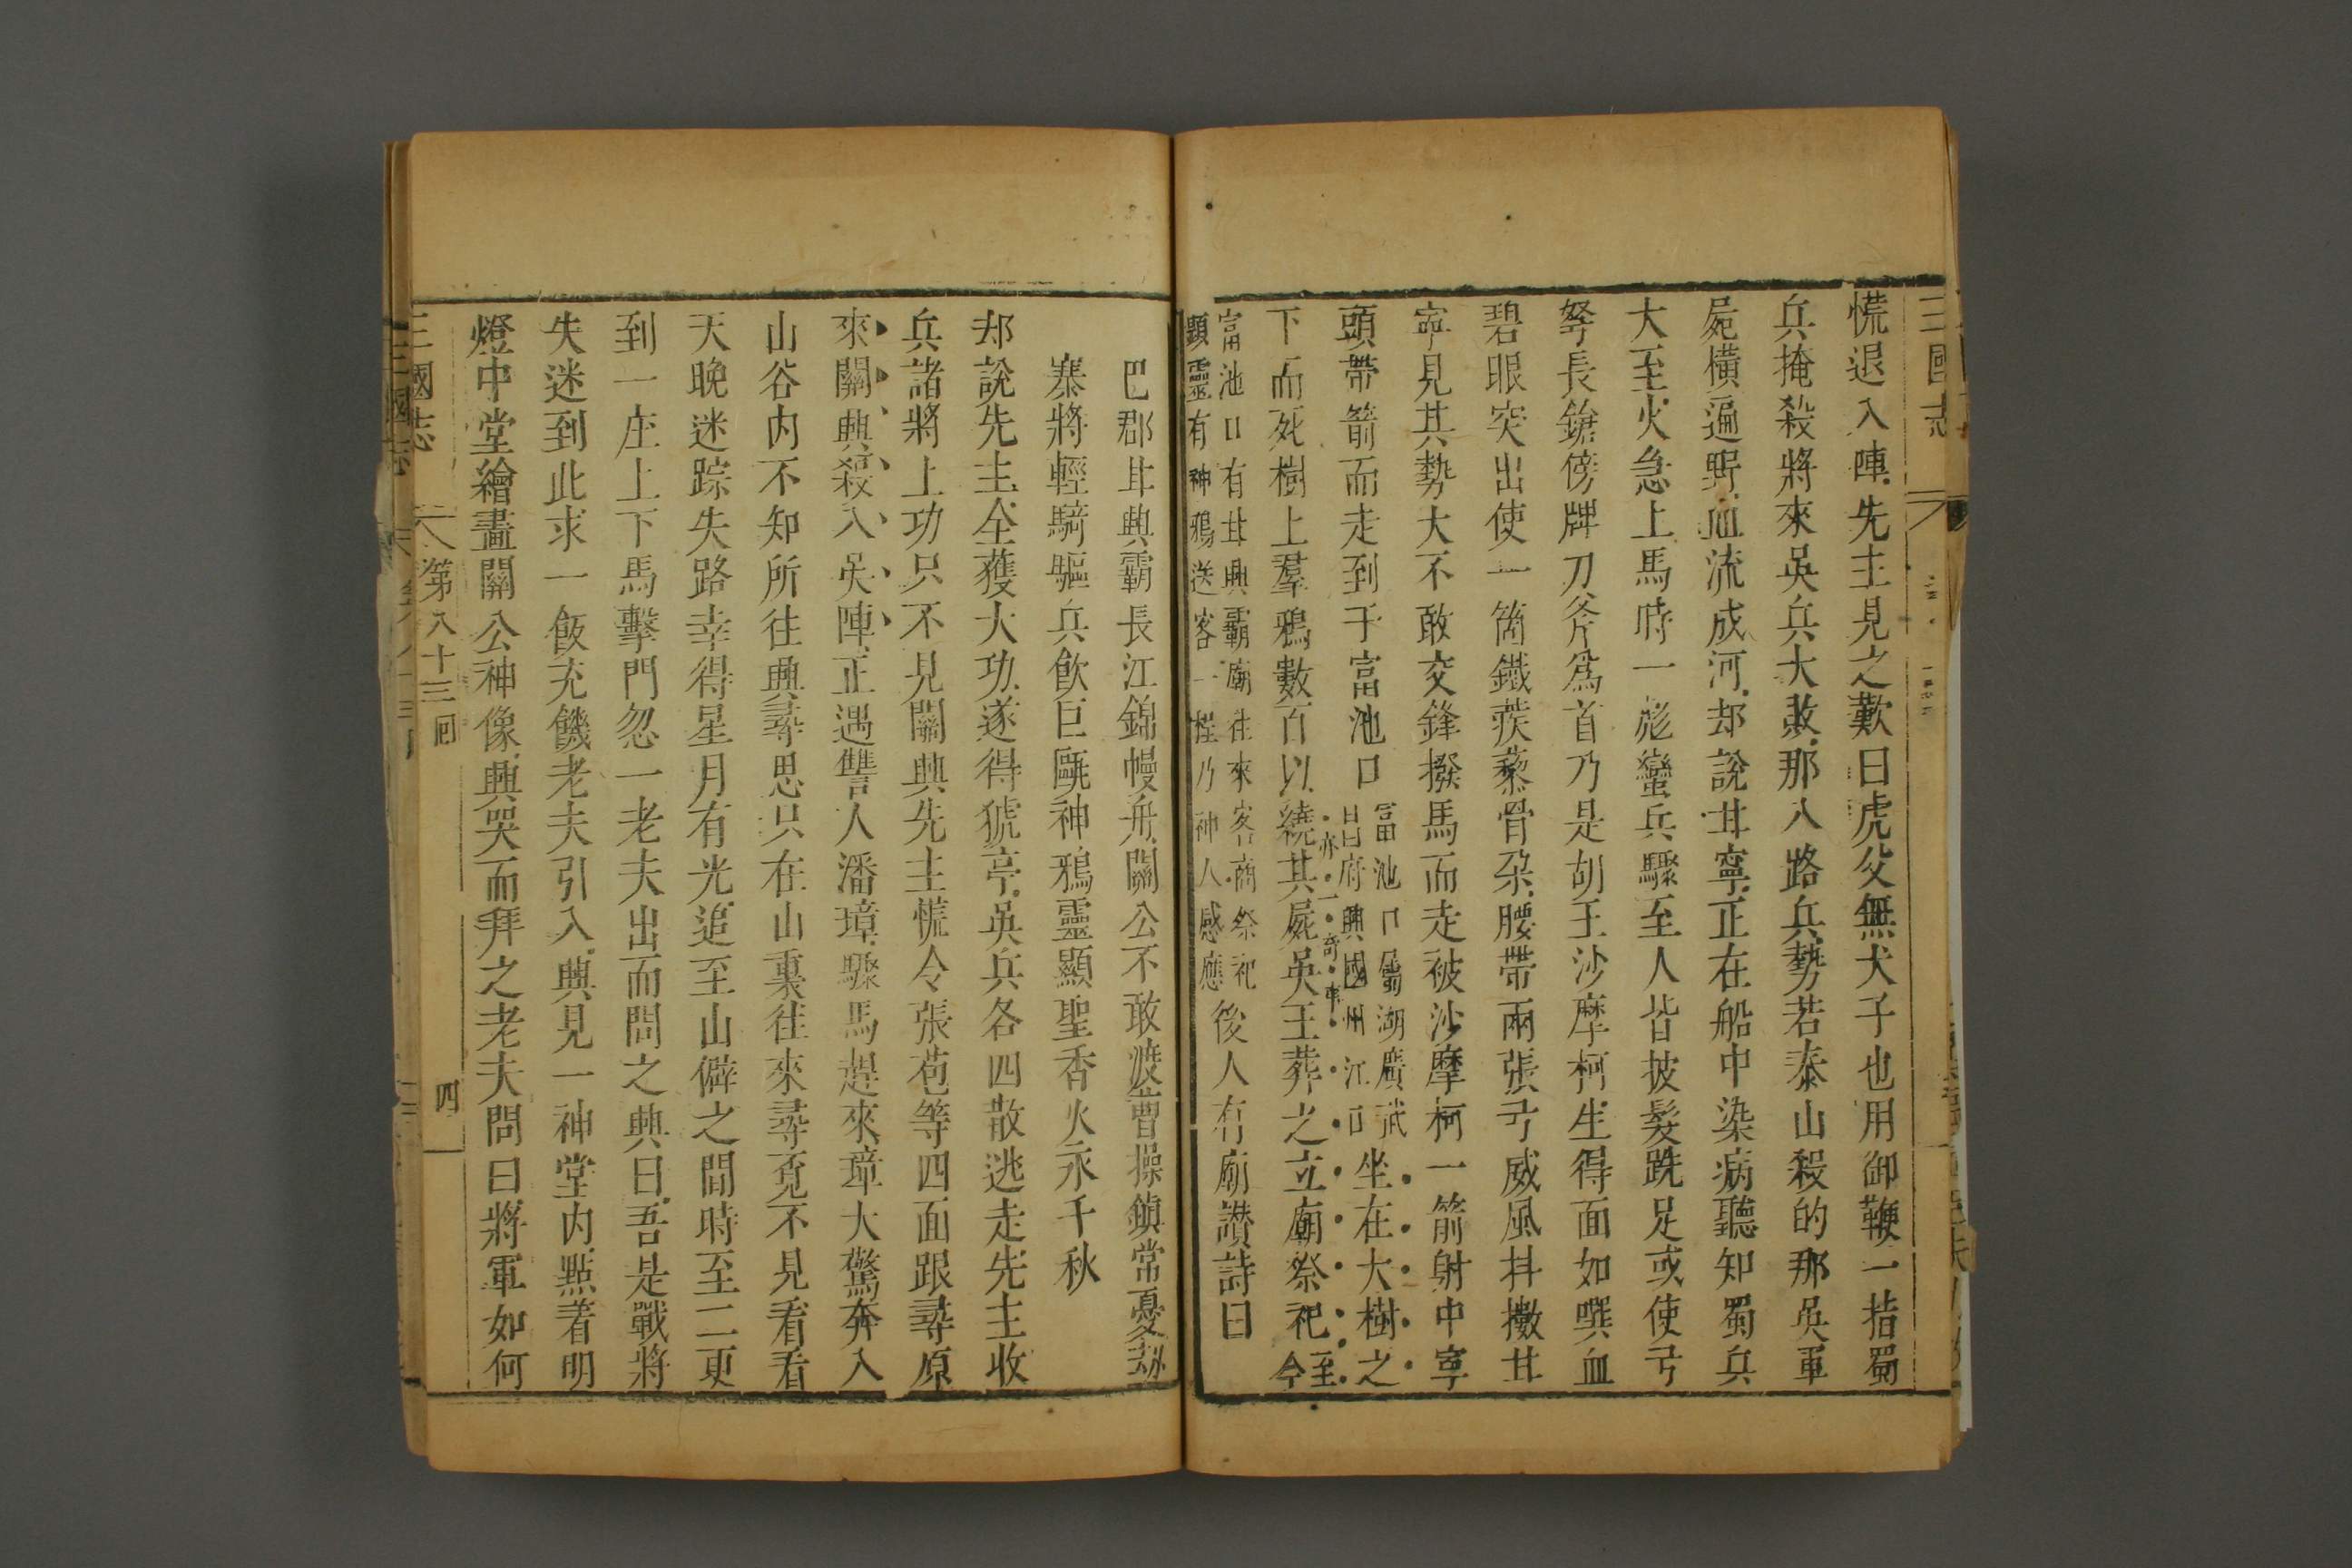 三國志
慌退入陣先主見之歎曰虎父無犬子也用御鞭一指蜀
兵掩殺將來吳兵大敗那八路兵勢若泰山殺的那吳軍
屍橫遍野血流成河却說甘寧正在船中染病聽知蜀兵
大至火急上馬時一彪蠻兵驟至人皆披髮跣足或使弓
弩長鎗傍牌刀斧爲首乃是胡王沙摩柯生得面如噀血
碧眼突出使一箇鐵蒺藜骨朵腰帶兩張弓威風抖擻甘
寧見其勢大不敢交鋒撥馬而走被沙摩柯一箭射中寧
頭帶箭而走到于富池口富池口屬湖廣武昌府興國州江口坐在大樹之
亦一奇事
下而死樹上羣鴉數百以繞其屍吳王葬之立廟祭祀至今
富池口有甘興霸廟往來客商祭祀
顯靈有神鴉送客一程乃神人感應後人有廟讚詩曰
巴郡甘興霸長江錦幔舟關公不敢渡曹操鎮常憂刼
寨將輕騎驅兵飲巨甌神鴉靈顯聖香火永千秋
却說先主全獲大功遂得猇亭吳兵各四散逃走先主收
兵諸將上功只不見關興先主慌令張苞等四面跟尋原
來關興殺入吳陣正遇讐人潘璋驟馬趕來璋大驚奔入
山谷内不知所往興尋思只在山裏往來尋覓不見看看
天晚迷踪失路幸得星月有光追至山僻之間時至二更
到一庄上下馬擊門忽一老夫出而問之興曰吾是戰將
失迷到此求一飯充饑老夫引入興見一神堂内點着明
燈中堂繪畫關公神像興哭而拜之老夫問曰將軍如何
三國志 第八十三回 四